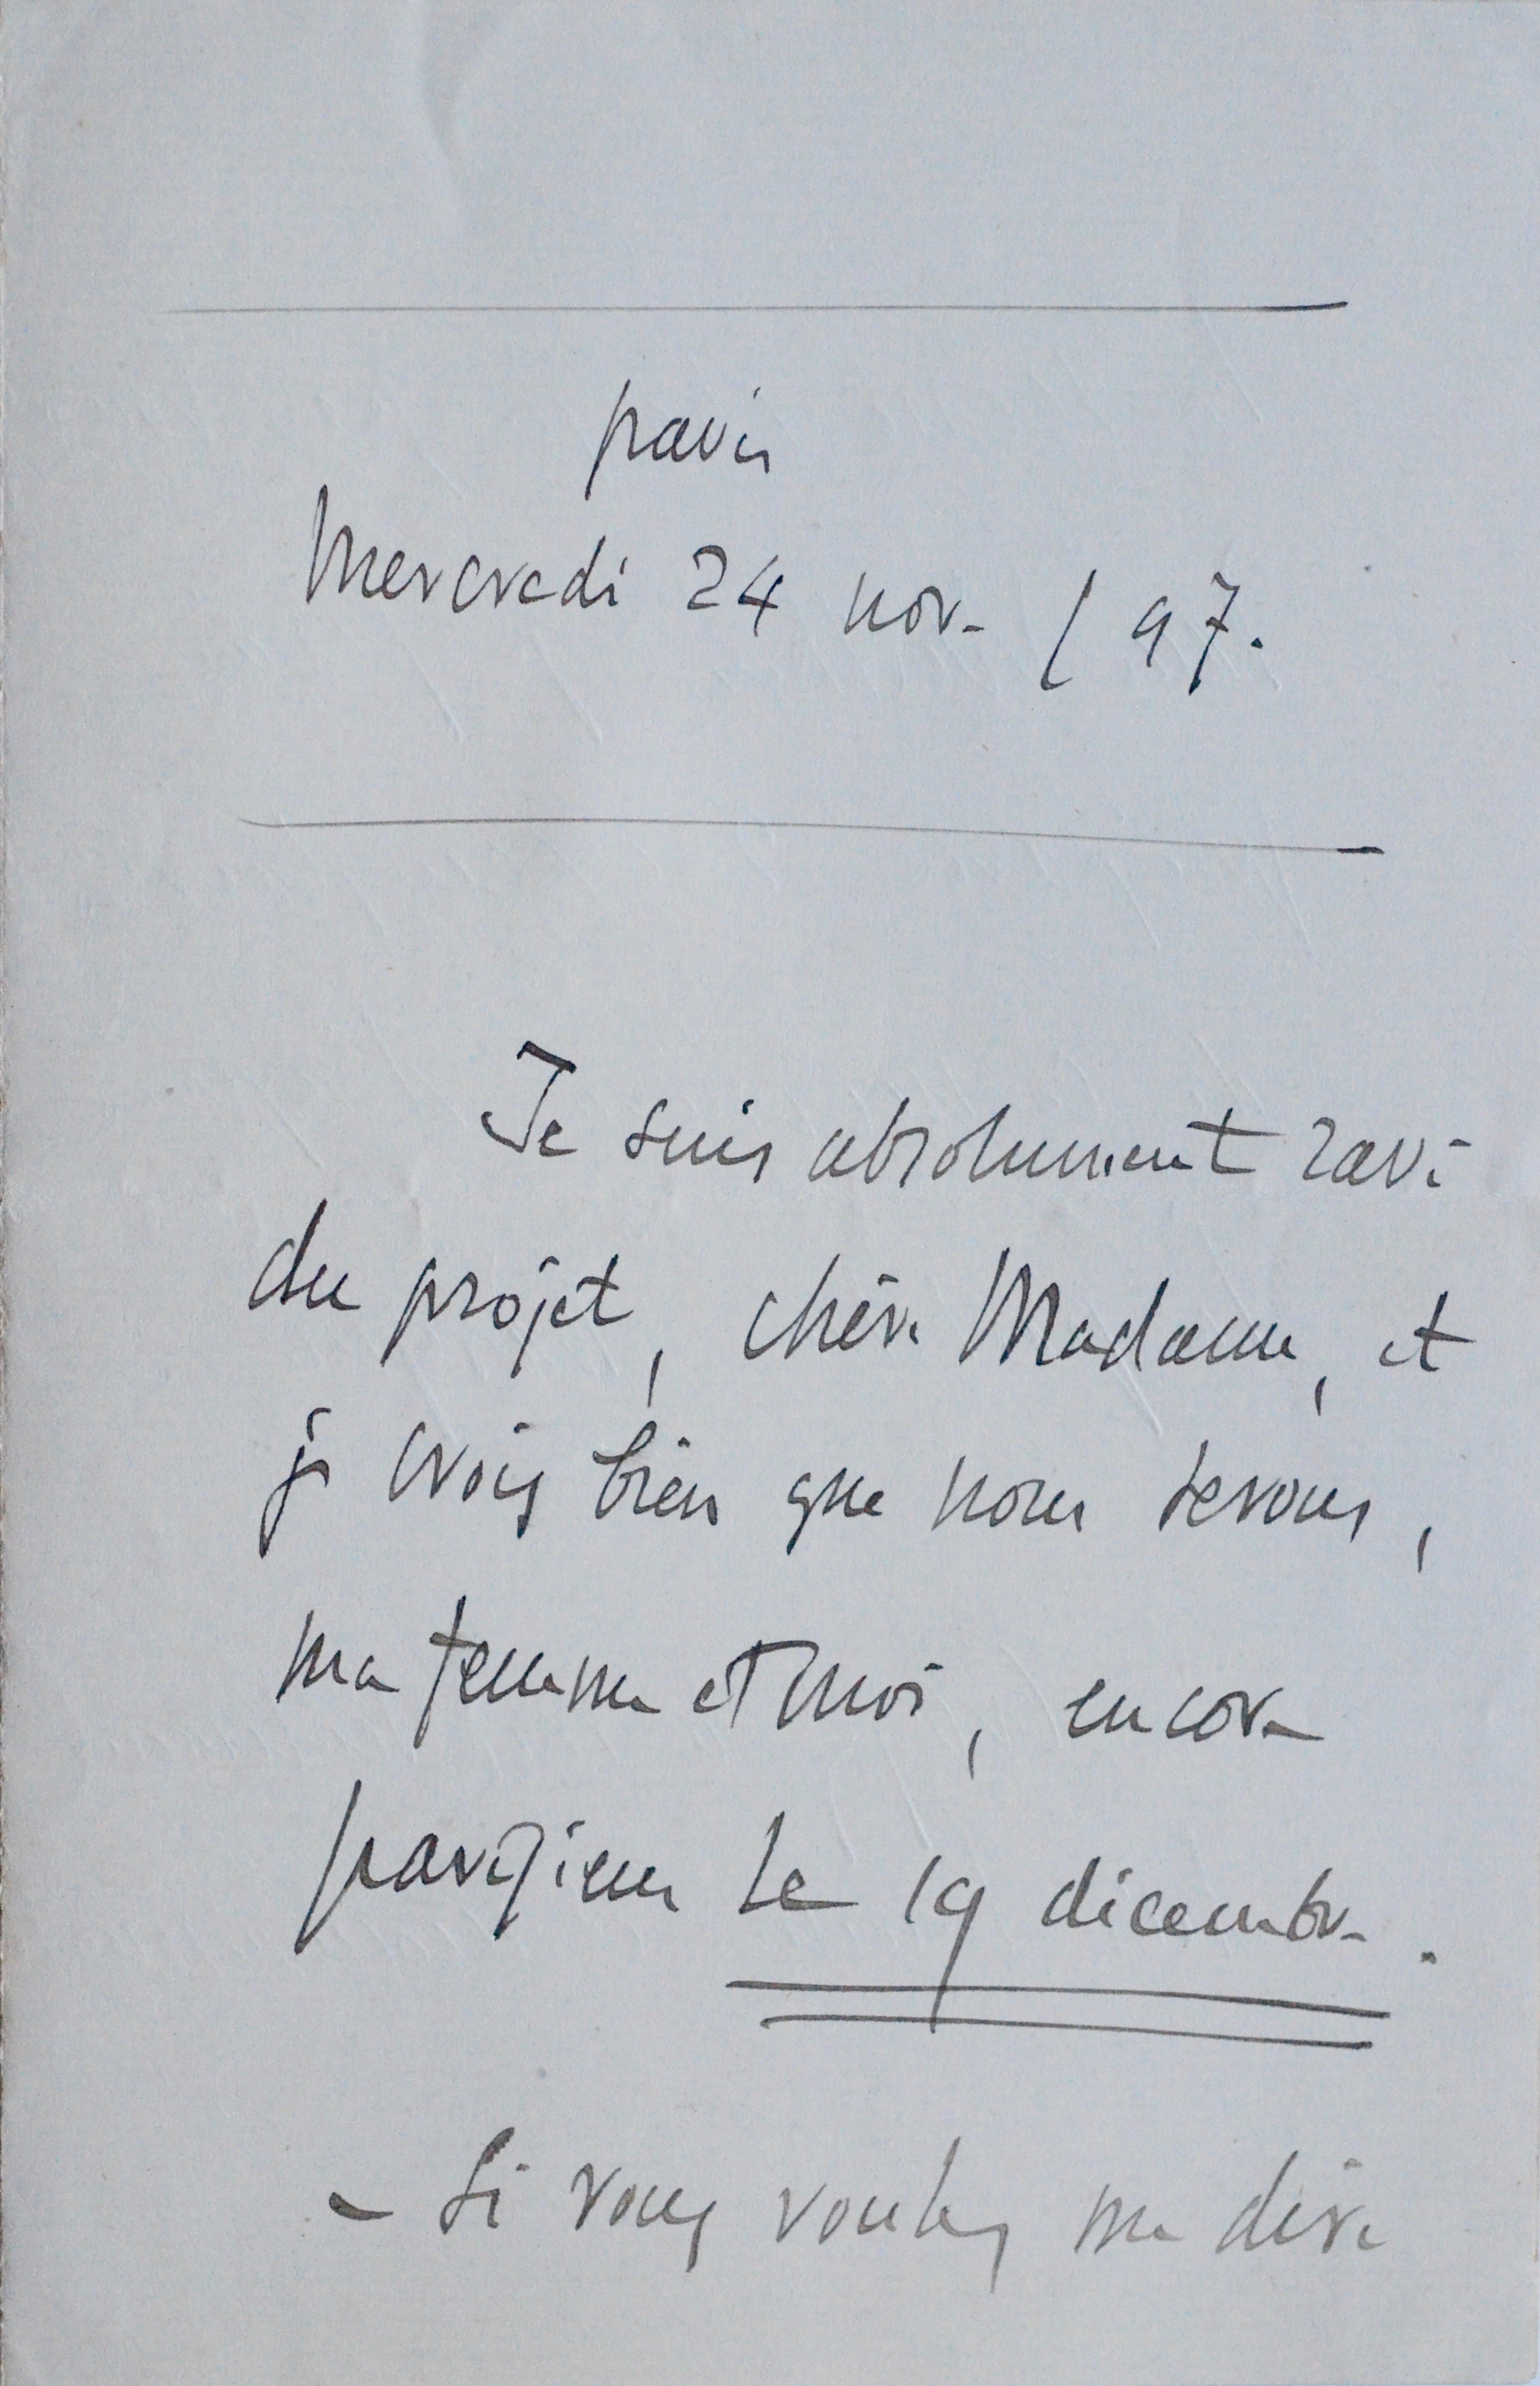 paris
Mercredi 24 nov. / 97.
Je suis absolument ravi
du projet, chère Madame, et
je crois bien que nous serons,
ma femme et moi, encore
parisiens le 19 décembre.
- Si vous voulez me dire